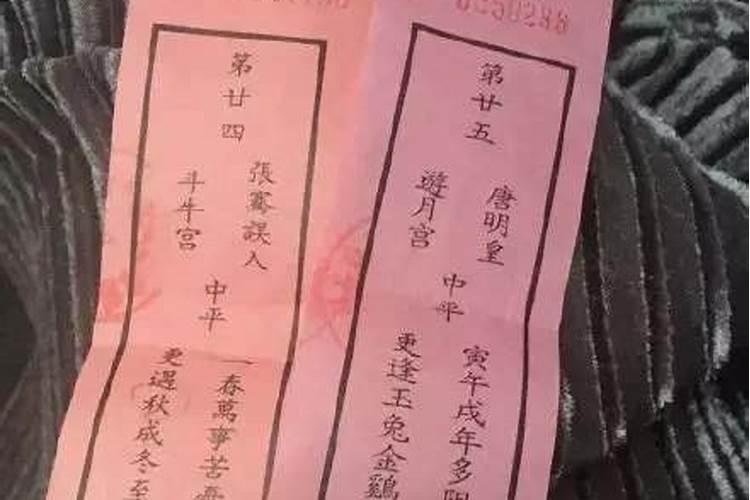 第廿四
張騫誤入
斗牛宮
中平
一春萬事苦
更遇秋成冬至
第廿五
唐明皇
遊月宮
中平
寅午戌年多
更逢玉兔金鷄